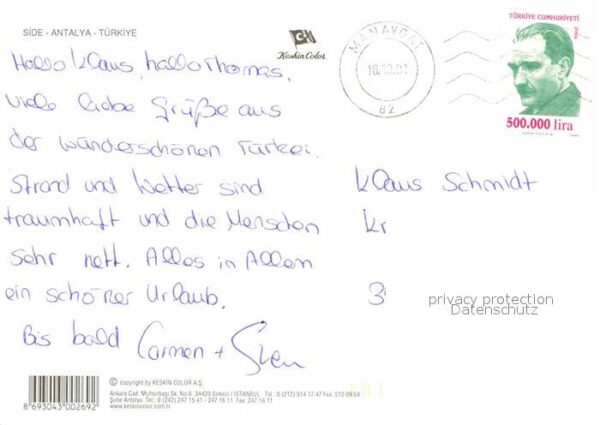 SIDE - ANTALYA - TÜRKİYE
Keskin Color
MANAVGAT
16.10.01
82
TÜRKİYE CUMHURİYETİ
500.000 lira
Hallo Klaus, hallo Thomas,
viele liebe Grüße aus
der wunderschönen Türkei.
Strand und Wetter sind
traumhaft und die Menschen
sehr nett. Alles in Allem
ein schöner Urlaub.
Bis bald Carmen + Sven
Klaus Schmidt
Kr
3
privacy protection
Datenschutz
© copyright by KESKİN COLOR A.Ş.
Ankara Cad. No: 34420 Sirkeci / İSTANBUL Tel: 0 (212) 514 17 47 Fax: 512 09 64
Şube Antalya Tel: 0 (242) 247 15 41 - 247 16 11 Fax: 247 16 11
www.keskincolor.com.tr
8 693043 002692